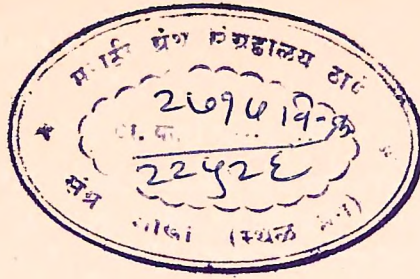 मराठी ग्रंथ संग्रहालय ठाणे
२७१५ वि-क
दा. क्र.
२२५२६
शाखा (स्थळ